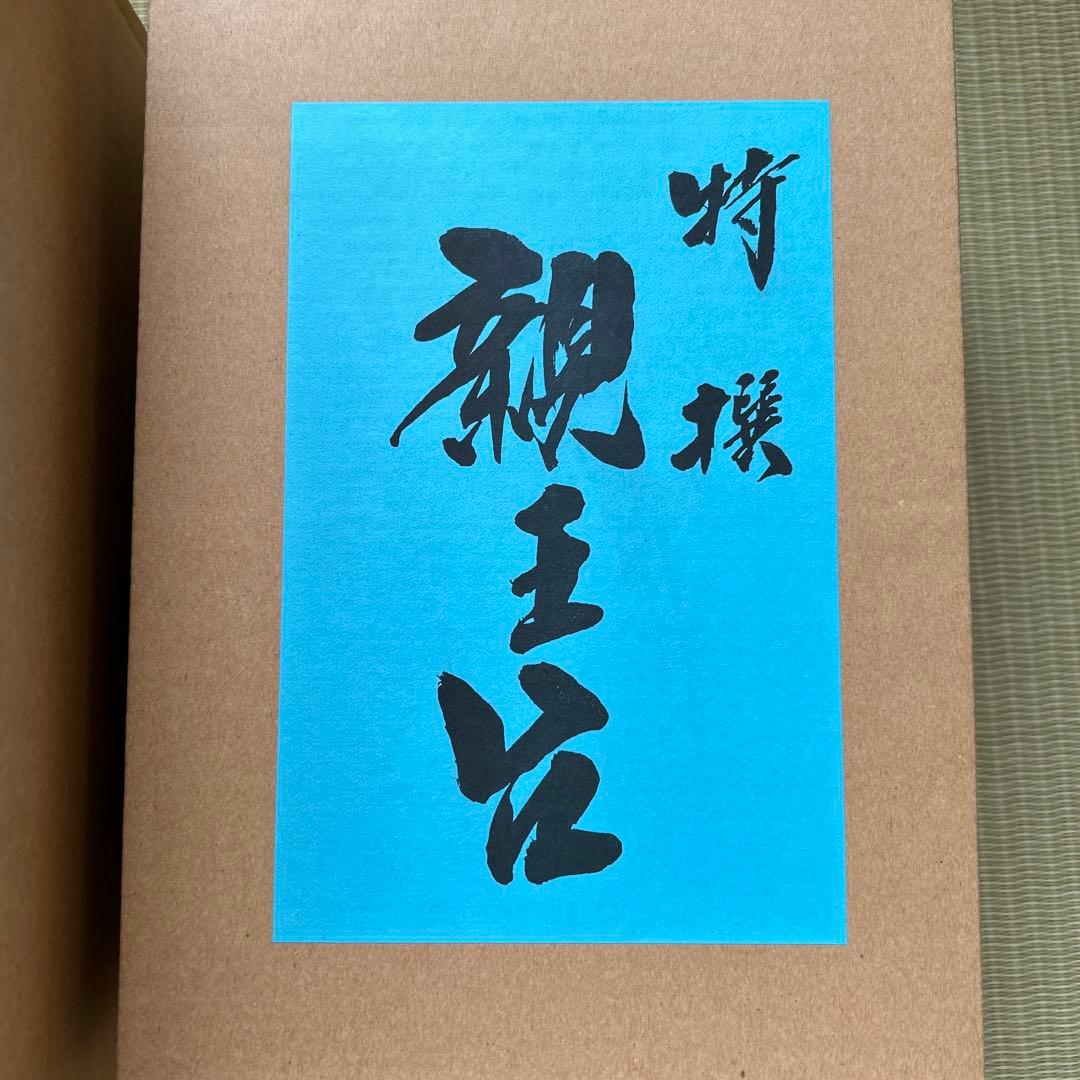 特撰
親王台